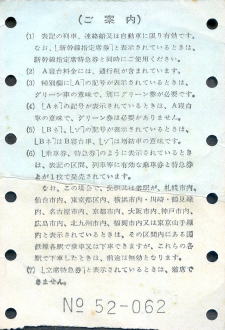 (ご案内)
(1) 表記の列車、連絡船又は自動車に限り有効です。
なお、「新幹線指定席券」と表示されているときは、
新幹線指定席特急券と同時にご使用ください。
(2) A寝台料金には、通行税が含まれています。
(3) 種別欄に「A」の記号が表示されているときは、
グリーン車の意味で、別にグリーン券が必要です。
(4) 「Aネ」の記号が表示されているときは、A寝台
車の意味で、グリーン券は必要ありません。
(5) 「Bネ」、の記号が表示されているときは、
「Bネ」はB寝台車、の意味です。
(6) 「乗車券、特急券」のように表示されているとき
は、表記の区間、列車等に有効な乗車券と特急券
が1枚で発売されています。
なお、この場合で、発駅又は着駅が、札幌市内、
仙台市内、東京都区内、横浜市内・川崎・鶴見線
内、名古屋市内、京都市内、大阪市内、神戸市内、
広島市内、北九州市内、福岡市内又は東京山手線
内と表示されているときは、その区間内にある国
鉄線各駅で乗車又は下車できますが、これらの各
駅で下車したときは、前途は無効となります。
(7) 「立席特急券」と表示されているときは、着席で
きません。
№ 52-062